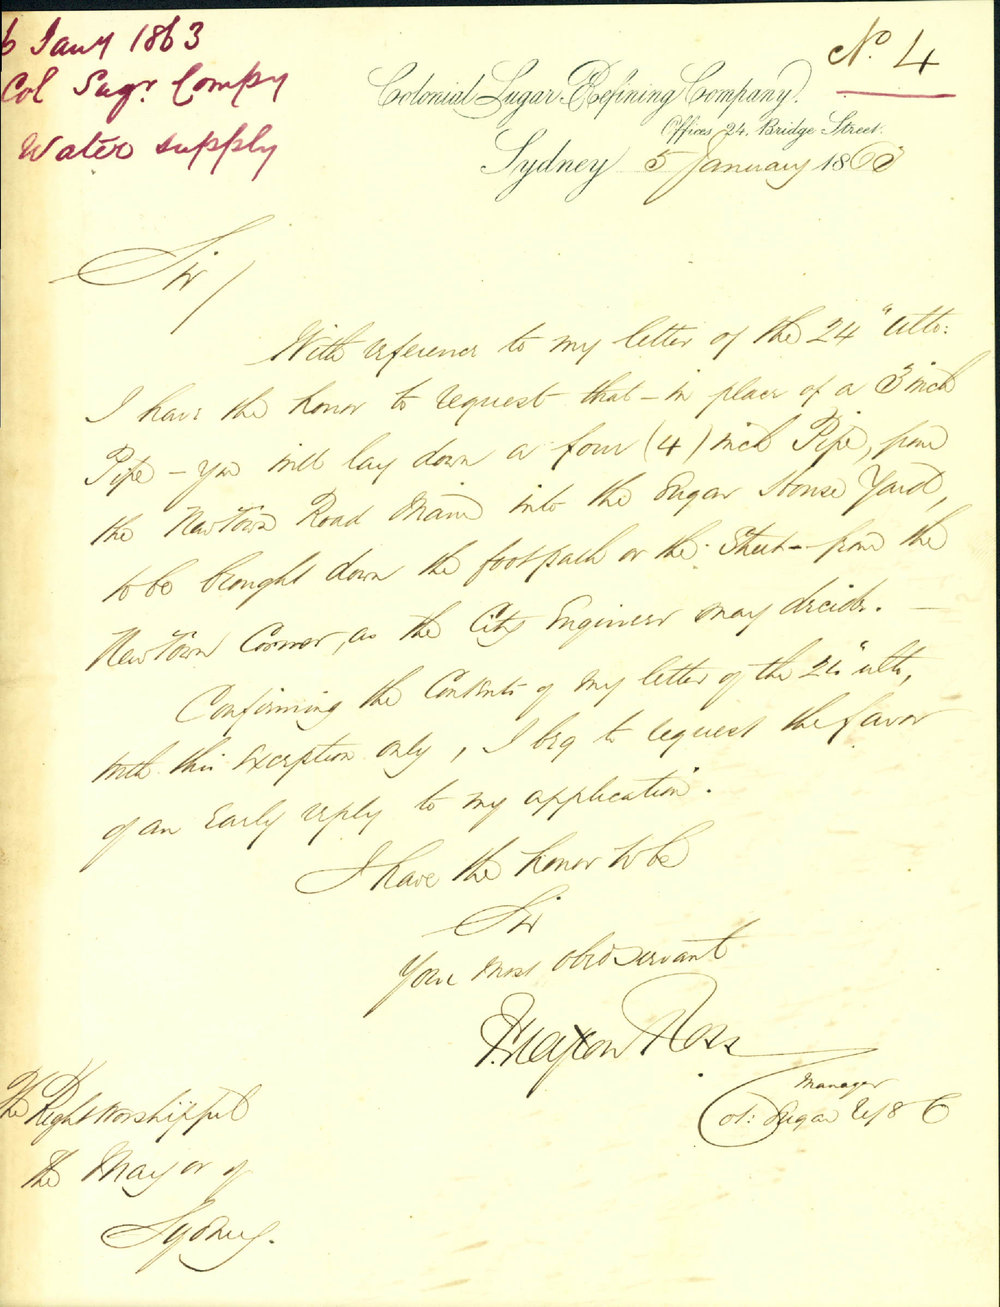 6 Jany 1863
Col Sugr. Compy
Water supply
No. 4
Colonial Sugar Refining Company.
Offices, 24, Bridge Street.
Sydney 5 January 1863
Sir/
With reference to my letter of the 24" ulto:
I have the honor to request that - in place of a 3 inch
Pipe - you will lay down a four (4) inch Pipe, from
the NewTown Road Main into the Sugar House Yard,
to be brought down the footpath or the Street - from the
NewTown Corner, as the City Engineer may decide. -
Confirming the Contents of my letter of the 24" ulto,
with this exception only, I beg to request the favor
of an Early reply to my application.
I have the honor to be
Sir
Your most obed servant
Ross
Manager
Col: Sugar Ref g C
The Right Worshipful
the Mayor of
Sydney.